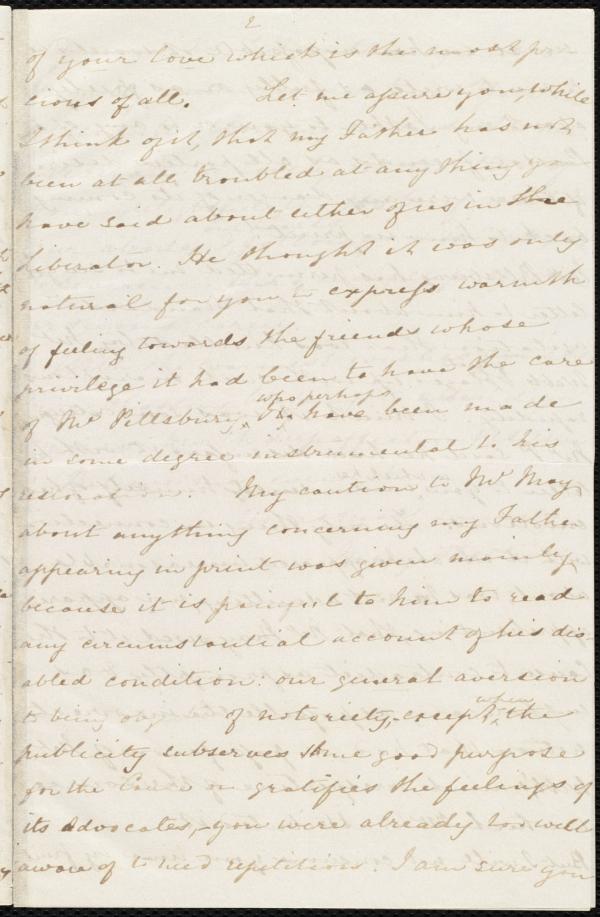 2
of your love which is the most pre
cious of all. Let me assure you, while
I think of it, that my Father has not
been at all troubled at anything you
have said about either of us in the
Liberator. He thought it was only
natural for you to express warmth
of feeling towards the friends whose
privilege it had been to have the care
of Mr Pillsbury, & who perhaps have been made
in some degree instrumental to his
restoration. My caution to Mr May
about anything concerning my Father
appearing in print was given mainly
because it is painful to him to read
any circumstantial account of his dis-
abled condition: our general aversion
to being of notoriety, except when the
publicity subserves some good purpose
for the Cause or gratifies the feelings of
its advocates, - you were already too well
aware of to need repetition. I am sure you